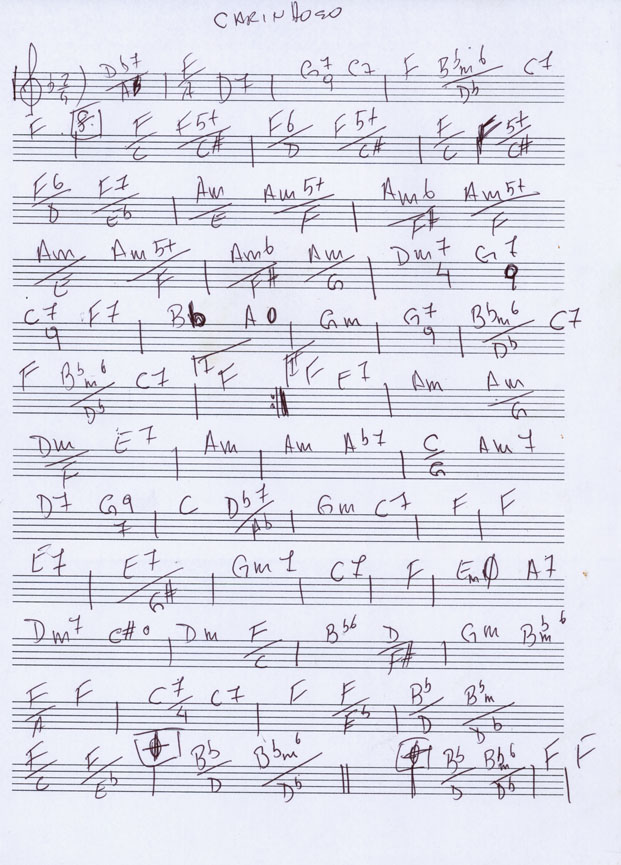 CARINHOSO
2/4 Db7/Ab | F/A D7 | G7 9 C7 | F Bbm6/Db C7
F F/C F5+/C# | F6/D F5+/C# | F/C F5+/C#
F6/D F7/Eb | Am/E Am5+/F | Am6/F# Am5+/F
Am/E Am5+/F | Am6/F# Am/G | Dm7 4 G7 9
C7 9 F7 | Bb A0 | Gm | G7 9 | Bbm6/Db C7
F Bbm6/Db C7 | I F :|| II F E7 | Am Am/G
Dm/F E7 | Am | Am Ab7 | C/G Am7
D7 G9 7 | C Db7/Ab | Gm C7 | F | F
E7 | E7/G# | Gm7 | C7 | F | EmØ A7
Dm7 C#o | Dm F/C | Bb6 D/F# | Gm Bbm6
F/A F | C7/4 C7 | F F/Eb | Bb/D Bbm/Db
F/C F/Eb | Bb/D Bbm6/Db || Bb/D Bbm6/Db | F | F